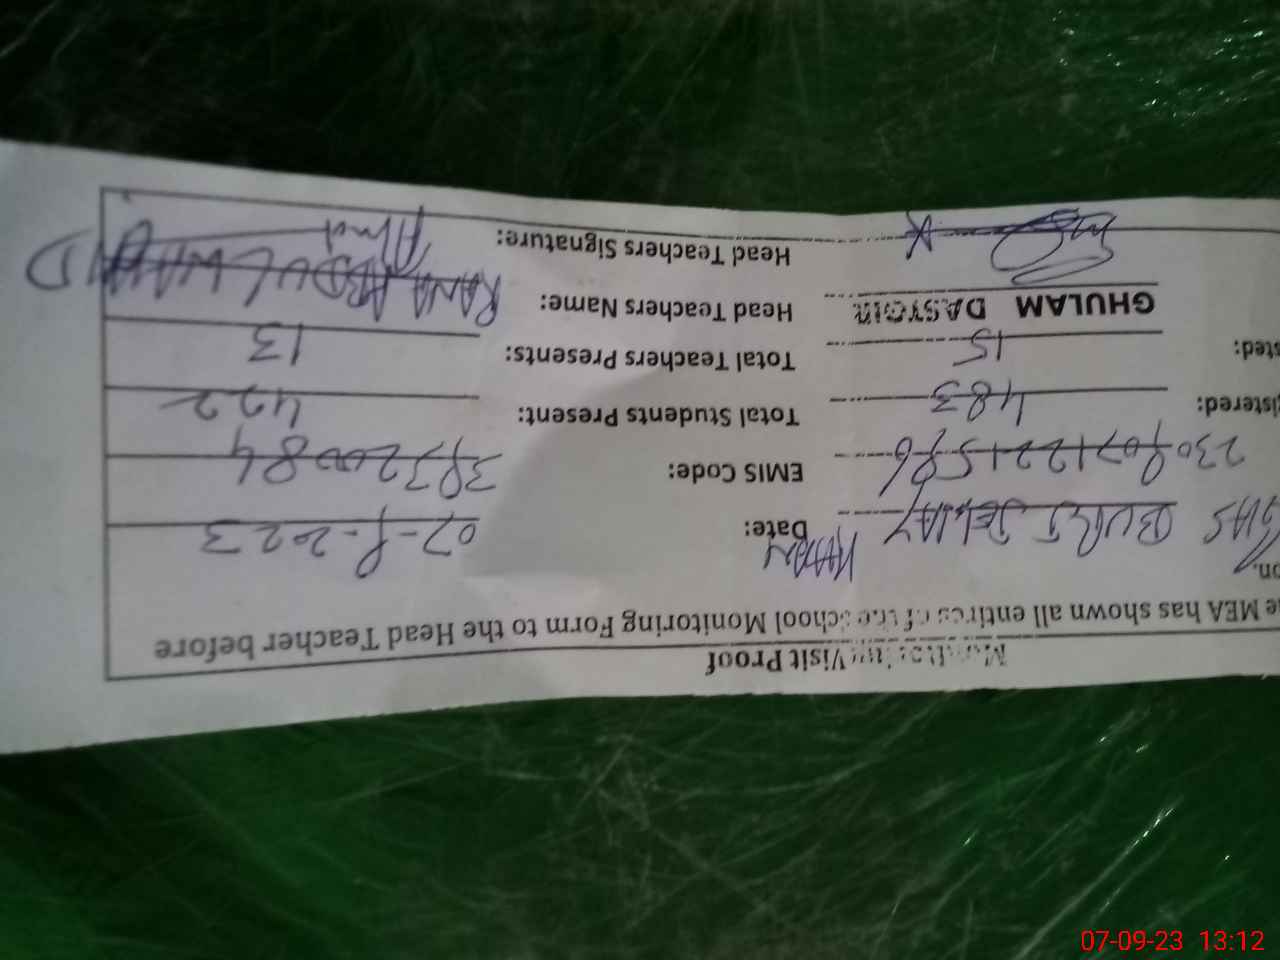 Monitoring Visit Proof
e MEA has shown all entires of the School Monitoring Form to the Head Teacher before
on.
BURJ JEWAY Date: 07-9-2023
EMIS Code: 39320084
istered: 483 Total Students Present: 422
sted: 15 Total Teachers Presents: 13
GHULAM DASTGIR Head Teachers Name: RANA ABDUL WAHID
Head Teachers Signature:
07-09-23 13:12